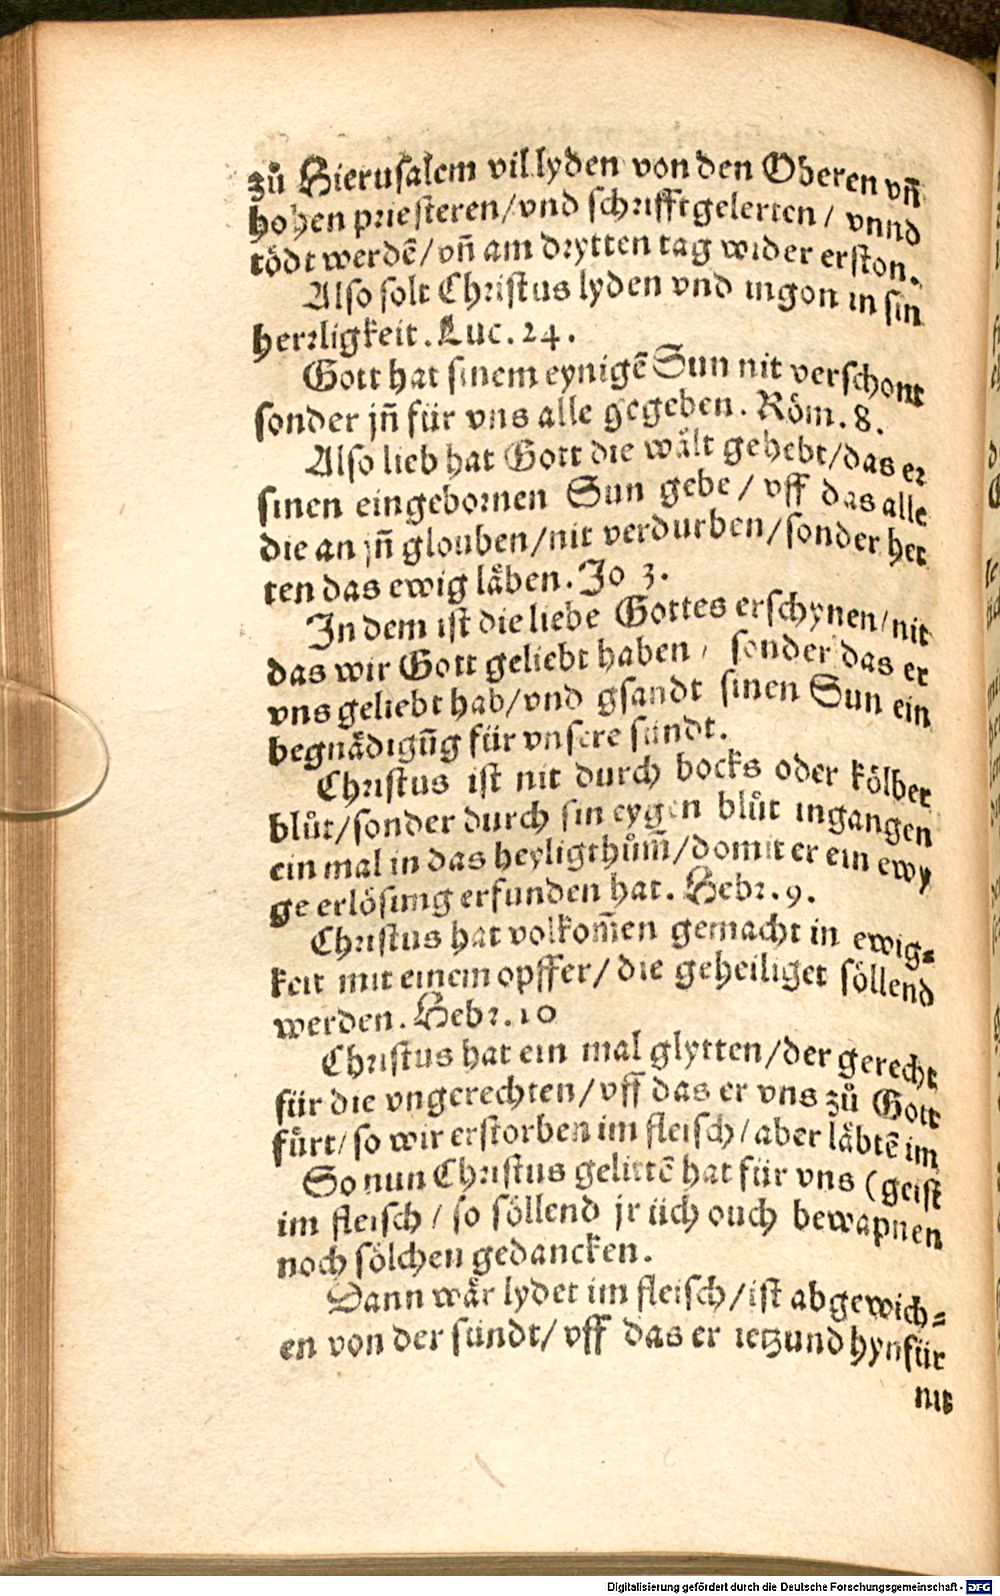 zuͦ Hierusalem vil lyden von den Oberen vñ
hohen priesteren/vnd schrifftgelerten/ vnnd
tödt werdē/vñ am drytten tag wider erston.
Also solt Christus lyden vnd ingon in sin
herrligkeit. Luc. 24.
Gott hat sinem eynigē Sun nit verschont
sonder jñ für vns alle gegeben. Röm. 8.
Also lieb hat Gott die wält gehebt/das er
sinen eingebornen Sun gebe/ vff das alle
die an jñ glouben/nit verdurben/sonder het
ten das ewig läben. Jo 3.
In dem ist die liebe Gottes erschynen/nit
das wir Gott geliebt haben/ sonder das er
vns geliebt hab/vnd gsandt sinen Sun ein
begnädigūg für vnsere sündt.
Christus ist nit durch bocks oder kölber
bluͦt/sonder durch sin eygen bluͦt ingangen
ein mal in das heyligthuͦm̄/domit er ein ewy
ge erlösung erfunden hat. Hebr. 9.
Christus hat volkom̄en gemacht in ewig=
keit mit einem opffer/ die geheiliget söllend
werden. Hebr. 10
Christus hat ein mal glytten/der gerecht
für die vngerechten/vff das er vns zuͦ Gott
fuͤrt/so wir erstorben im fleisch/aber läbtē im
So nun Christus gelittē hat für vns (geist
im fleisch/ so söllend jr üch ouch bewapnen
noch sölchen gedancken.
Dann wär lydet im fleisch/ist abgewich=
en von der sündt/ vff das er ietzund hynfür
nit
Digitalisierung gefördert durch die Deutsche Forschungsgemeinschaft - DFG